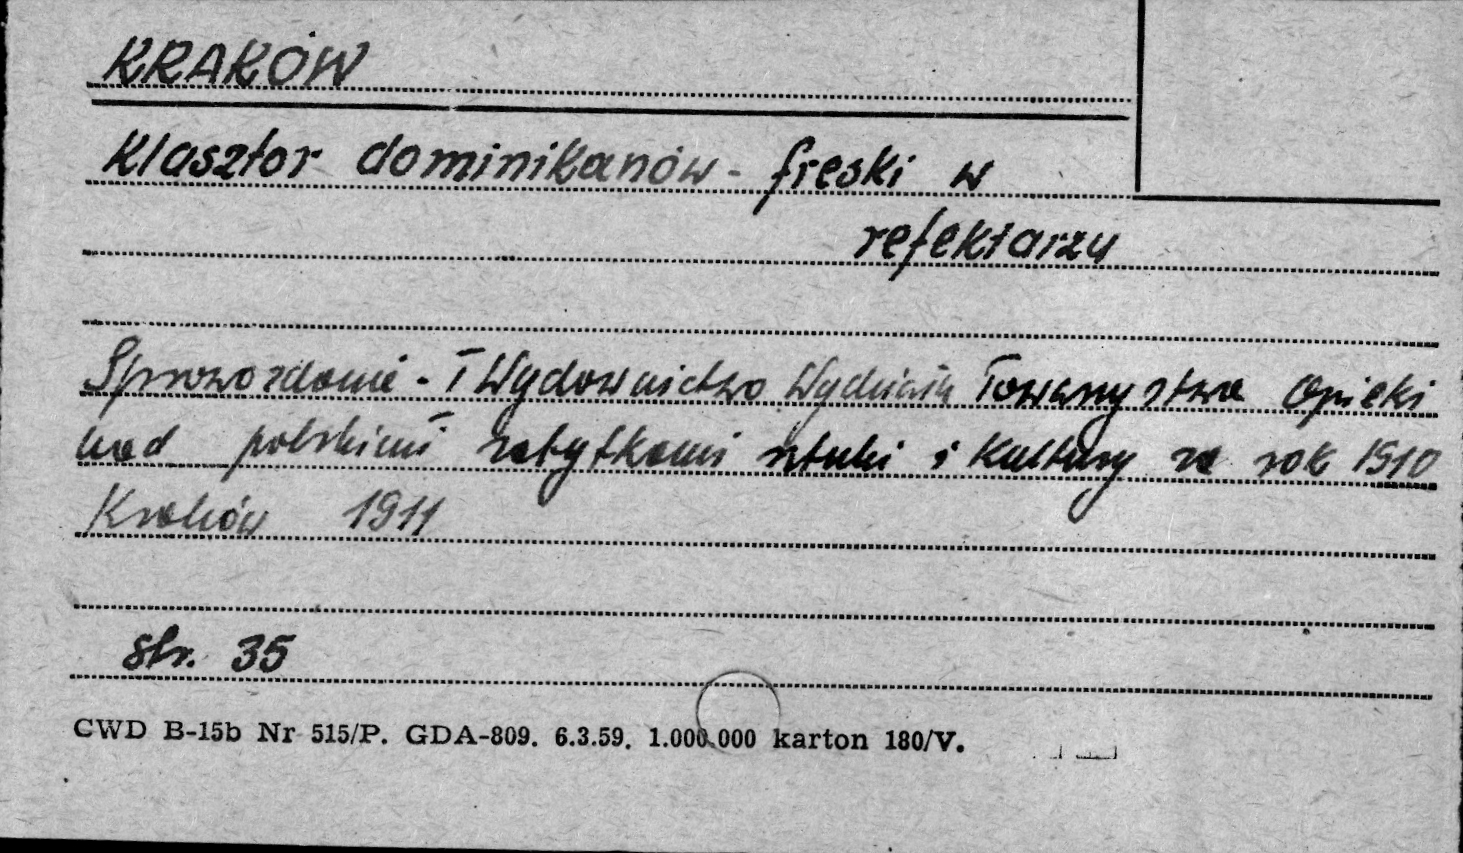 KRAKÓW
Klasztor dominikanów - freski w
refektarzu
Sprawozdanie - I Wydawnictwo Wydziału Towarzystwa Opieki
nad polskimi zabytkami sztuki i Kultury za rok 1910
Kraków 1911
str. 35
CWD B-15b Nr 515/P. GDA-809. 6.3.59. 1.000.000 karton 180/V.